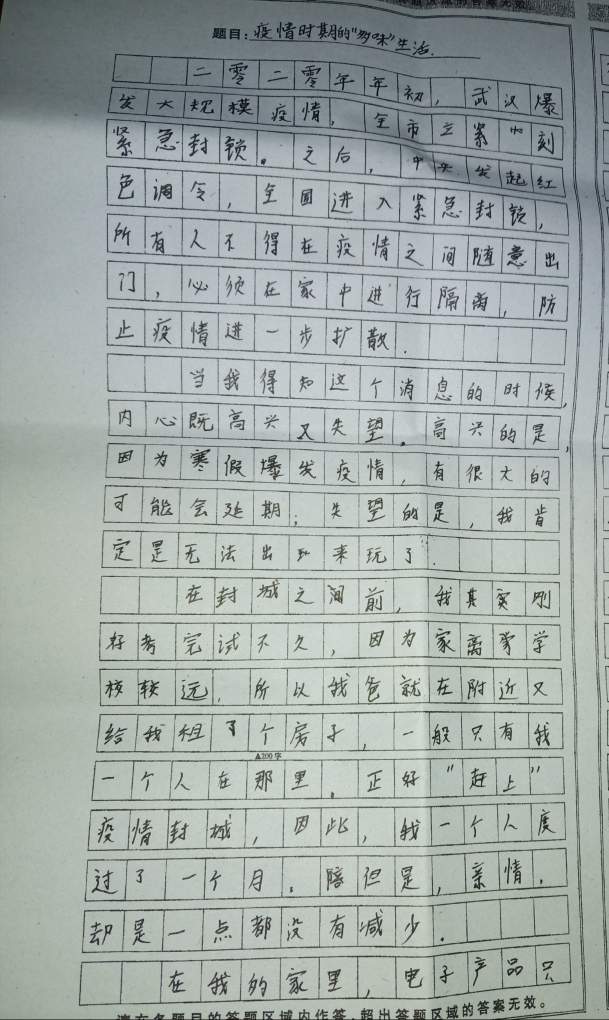 题目:疫情时期的"多味"生活.
二零二零年年初,武汉爆
发大规模疫情,全市立紧刻
紧急封锁。之后,中央发起红
色调令,全国进入紧急封锁,
所有人不得在疫情之间随意出
门,必须在家中进行隔离,防
止疫情进一步扩散.
当我得知这个消息的时候,
内心既高兴又失望。高兴的是,
因为寒假爆发疫情,有很大的
可能会延期;失望的是,我肯
定是无法出来玩了.
在封城之间前,我其实刚
好考完试不久,因为家离学
校较远,所以我爸就在附近又
给我租了个房子,一般只有我
▲200字
一个人在那里。正好"赶上"
疫情封城,因此,我一个人度
过了一个月。但是,亲情,
却是一点都没有减少.
在我的家里,电子产品只
请在各题目的答题区域内作答,超出答题区域的答案无效。